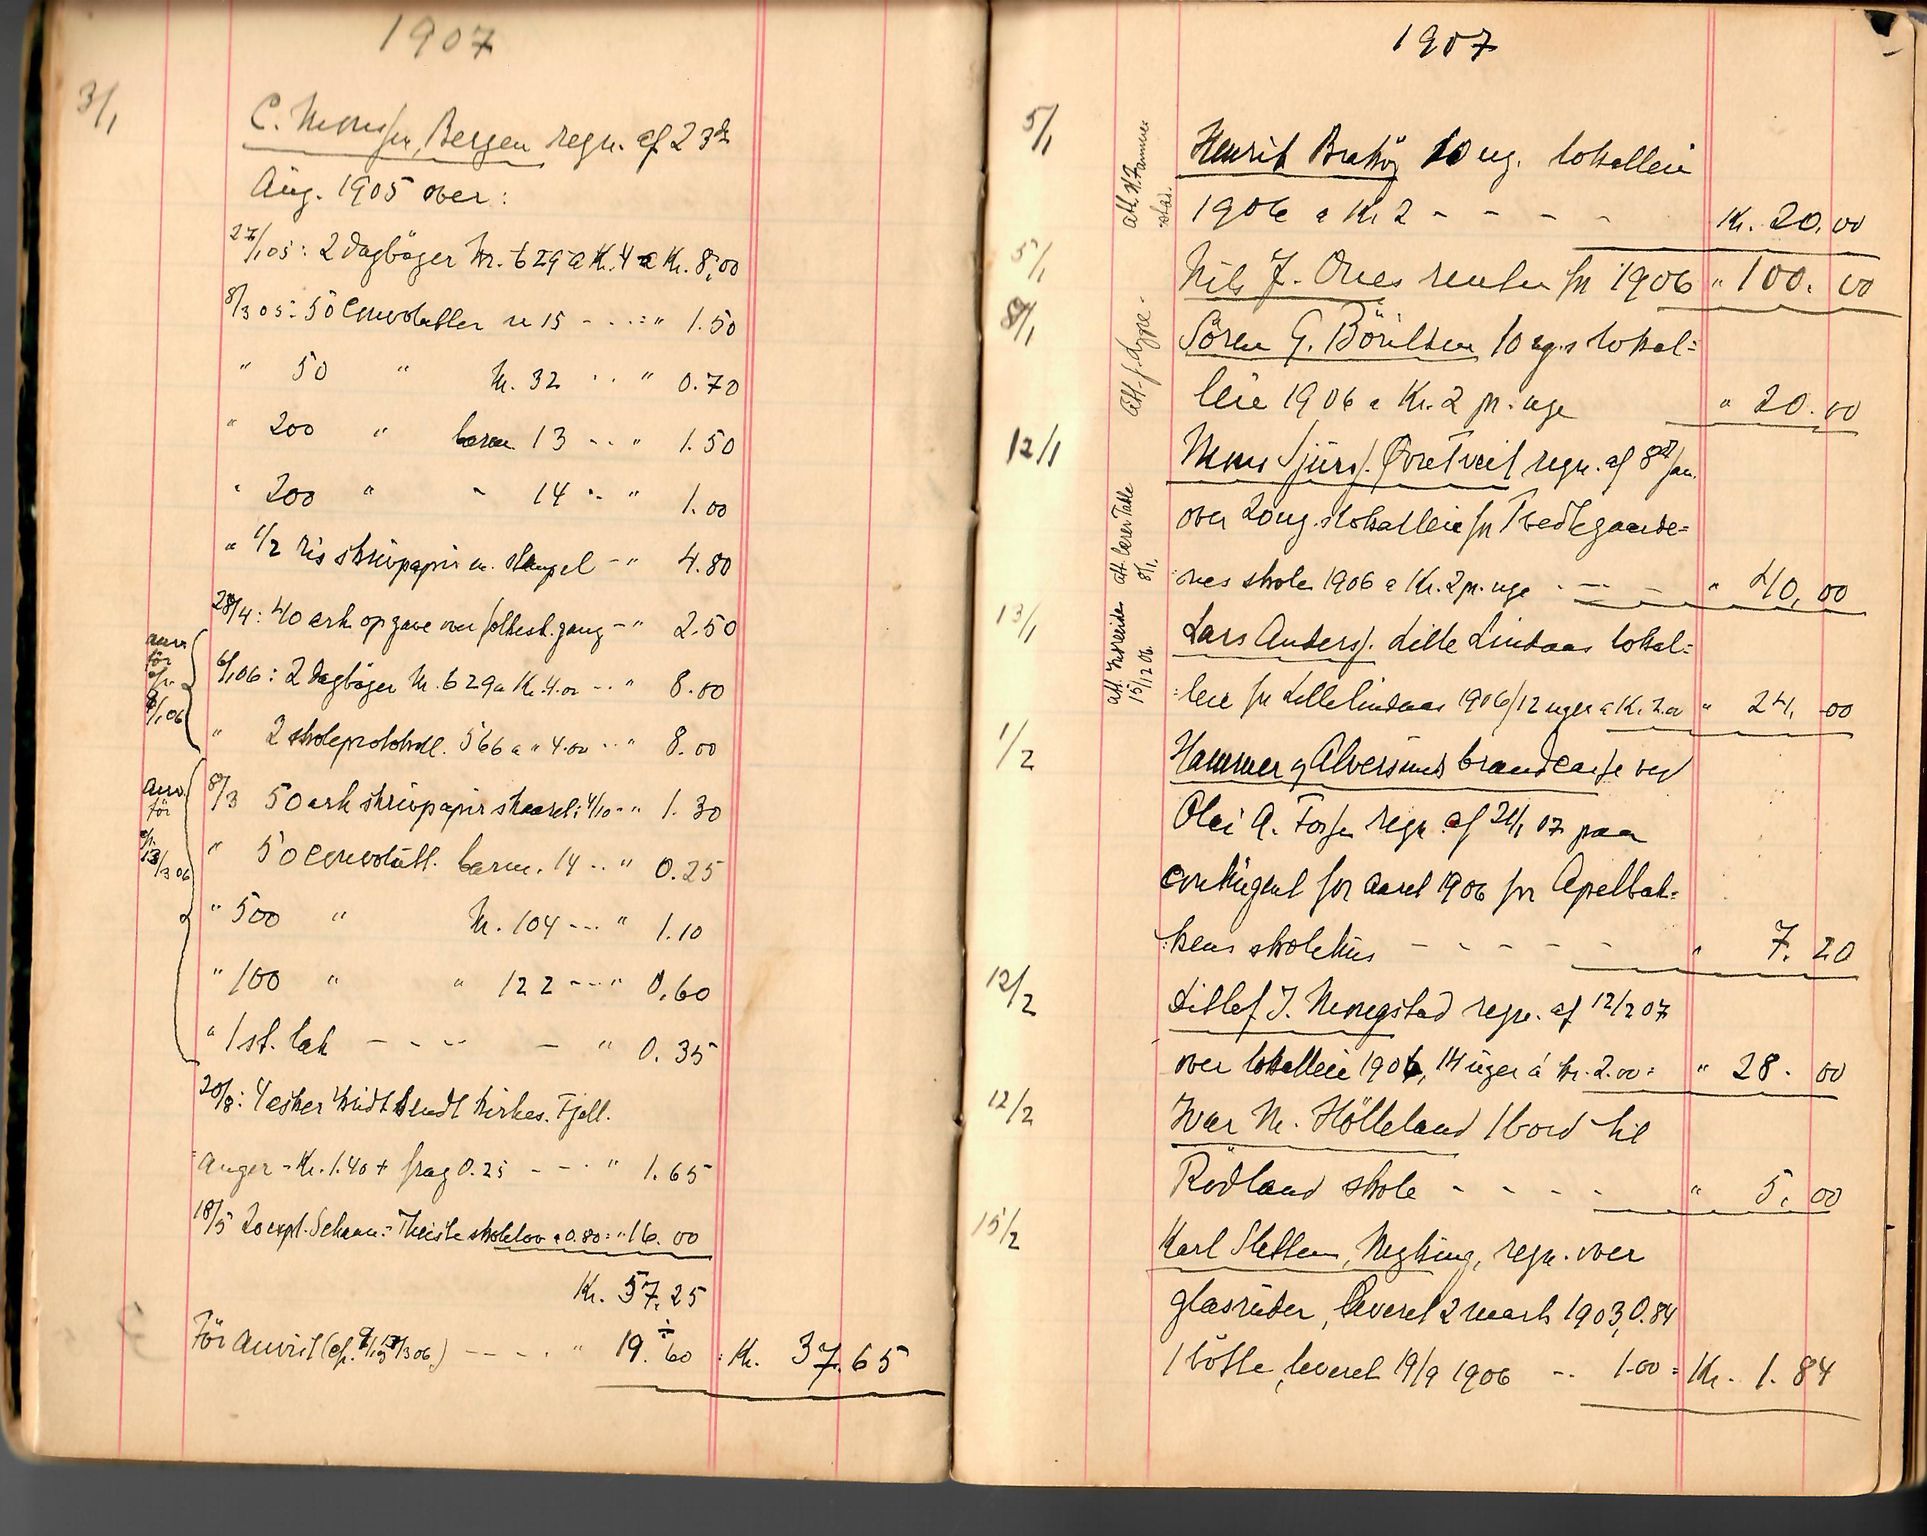 1907
3/1
C. Monsen, Bergen regn. af 23de
Aug. 1905 over:
27/1 05: 2 dagbøger Nr. 629 a Kr. 4 = Kr. 8,00
8/3 05: 50 Convolutter nr 15 - . . = " 1.50
" 50 " Nr. 32 . . " 0.70
" 200 " 13 - . . " 1.50
" 200 " " 14 - . " 1.00
" 1/2 Ris skrivpapir m. stempel - " 4.80
28/4: 40 ark opgave over folkesk. gang - " 2.50
anv.
før
cfr.
9/1 06
6/1 06: 2 dagbøger Nr. 629 a Kr. 4.00 - . . " 8.00
" 2 skoleprotokoll. 566 a " 4.00 . . " 8.00
anv.
før
cfr.
13/3 06
8/3 50 ark skrivpapir skaaret i 4/10 - - " 1.30
" 50 Convolutt. 14 - . . " 0.25
" 500 " Nr. 104 - - - " 1.10
" 100 " " 122 - - - " 0.60
" 1 st. lak - - - - " 0.35
20/8: 4 esker kridt sendt Kirkes. Fjell-
anger = Kr. 1.40 + frag 0.25 - - . " 1.65
18/5 20 expl. skolelov a 0.80 = " 16.00
Kr. 57.25
Før anvist (cfr. 9/1, 13/3 06.) - - - . " ÷ 19.60 = Kr. 37.65
1907
5/1
Henrik 10 ug. lokalleie
1906 a Kr 2 - - - - Kr. 20,00
5/1
Nils J. Ones renter for 1906 " 100.00
8/1
Søren G. 10 ug.s lokal=
leie 1906 a Kr. 2 pr. uge " 20.00
att. J. Lygre.
12/1
Mons Sjurs. Øvretveit regn. af 8de Jan.
over 20 ug.s lokalleie for Tvedtegaarde=
nes skole 1906 a Kr. 2 pr. uge - - - " 40,00
att. lærer Takle
8/1.
13/1
Lars Anders. Lille Lindaas lokal=
leie for Lille lindaas 1906/12 uger a Kr. 2.00 " 24,00
15/12 06.
1/2
Hammer og Alversunds brandcasse ved
Olai A. regn. af 21/1 07 paa
contingent for aaret 1906 for Apelbak=
kens skolehus - - - - - " 7.20
12/2
Ditlef J. Mongstad regn. af 12/2 07
over lokalleie 1906, 14 uger á kr. 2.00 = " 28.00
12/2
Ivar N. Hølleland 1 bord til
Rødland skole - - - - " 5.00
15/2
Karl Sletten, regn. over
glasruder, leveret 2 mars 1903, 0.84
1 bøtte, leveret 19/9 1906 - . 1.00 = Kr. 1.84